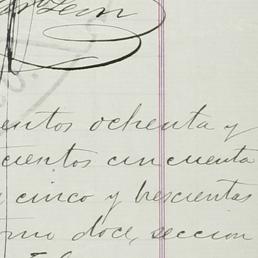 Leon
entos ochenta y
cientos cincuenta
cinco y trescientas
omo doce, seccion